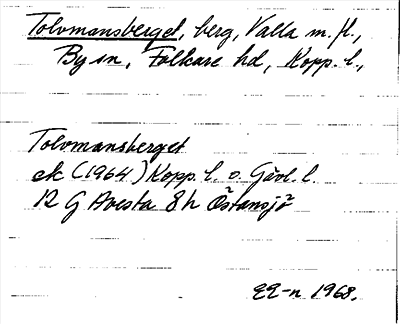 Tolvmansberget, berg, Valla m.fl.,
By sn, Folkare hd, Kopp. l.,
Tolvmansberget
ek (1964) Kopp. l. o. Gävl. l.
12 G Avesta 8h Östansjö
EE-n 1968.